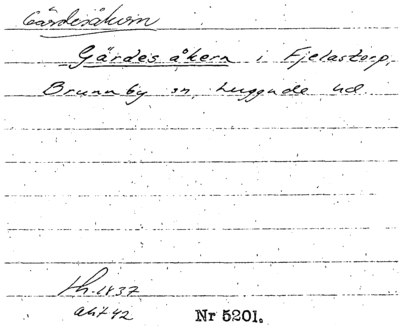 Gärdesåkern
Gärdes åkern i Fjelastorp,
Brunnby sn, Luggude hd.
1837
Nr 5201.